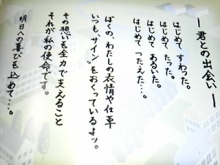 ― 君との出会い ―
はじめて すわった。
はじめて たった。
はじめて あるいた。
はじめて つたえた…。
ぼくの、わたしの表情や仕草
いつもサインをおくっているよッ。
その思いを全力で支えること
それが私の使命です。
明日への喜びを込めて…。